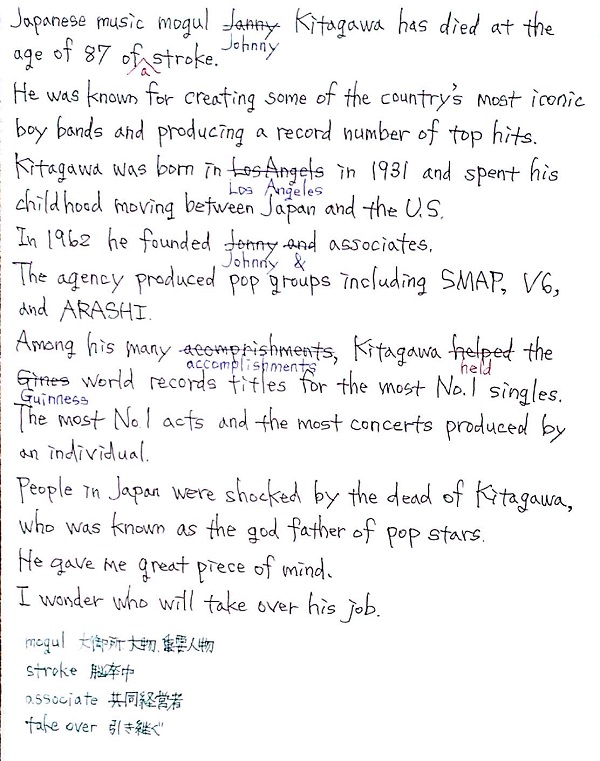 Japanese music mogul Janny Kitagawa has died at the
Johnny
age of 87 of stroke.
a
He was known for creating some of the country's most iconic
boy bands and producing a record number of top hits.
Kitagawa was born in Los Angels in 1931 and spent his
Los Angeles
childhood moving between Japan and the U.S.
In 1962 he founded Jonny and associates.
Johnny &
The agency produced pop groups including SMAP, V6,
and ARASHI.
Among his many acomprishments, Kitagawa helped the
accomplishments held
Gines world records titles for the most No.1 singles.
Guinness
The most No.1 acts and the most concerts produced by
an individual.
People in Japan were shocked by the dead of Kitagawa,
who was known as the god father of pop stars.
He gave me great piece of mind.
I wonder who will take over his job.
mogul 大御所 大物 重要人物
stroke 脳卒中
associate 共同経営者
take over 引き継ぐ